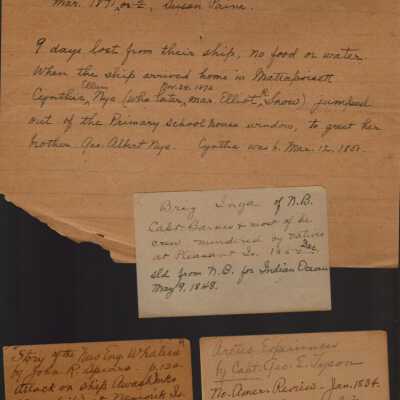 Mar. 1871, or 2, Susan Paine.
9 days lost from their ship, no food or water.
When the ship arrived home in Mattapoisett
Ellen Nov. 28. 1872
Cynthia, Nye (who later, mar. Elliot R. Snow) jumped
out of the Primary school house window, to greet her
brother Geo. Albert Nye. Cynthia was b. Mar. 12, 1851.
Brig Inga of N.B.
Capt. Barnes & most of the
crew murdered by natives
at Pleasant Is. Dec.
sld from N.B. for Indian Ocean
May 9, 1848.
"Story of the New Eng. Whalers"
by John R. Spears p. 120.
Attack on ship Awashonks
Arctic Experiences
by Capt. Geo. E. Tyson
No. Amer. Review - Jan. 1834.